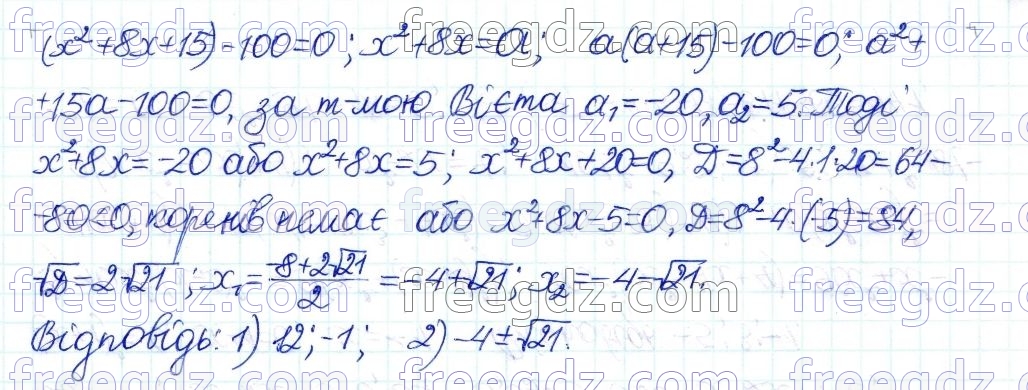 (x²+8x+15)-100=0; x²+8x=a; a(a+15)-100=0; a²+
+15a-100=0, за т-мою Вієта a₁=-20, a₂=5. Тоді
x²+8x=-20 або x²+8x=5; x²+8x+20=0, Д=8²-4·1·20=64-
-80<0, коренів немає або x²+8x-5=0, Д=8²-4·(-5)=84,
√Д=2√21; x₁=(-8+2√21)/2=-4+√21; x₂=-4-√21.
Відповідь: 1) 12; -1; 2) -4±√21.
freegdz.com